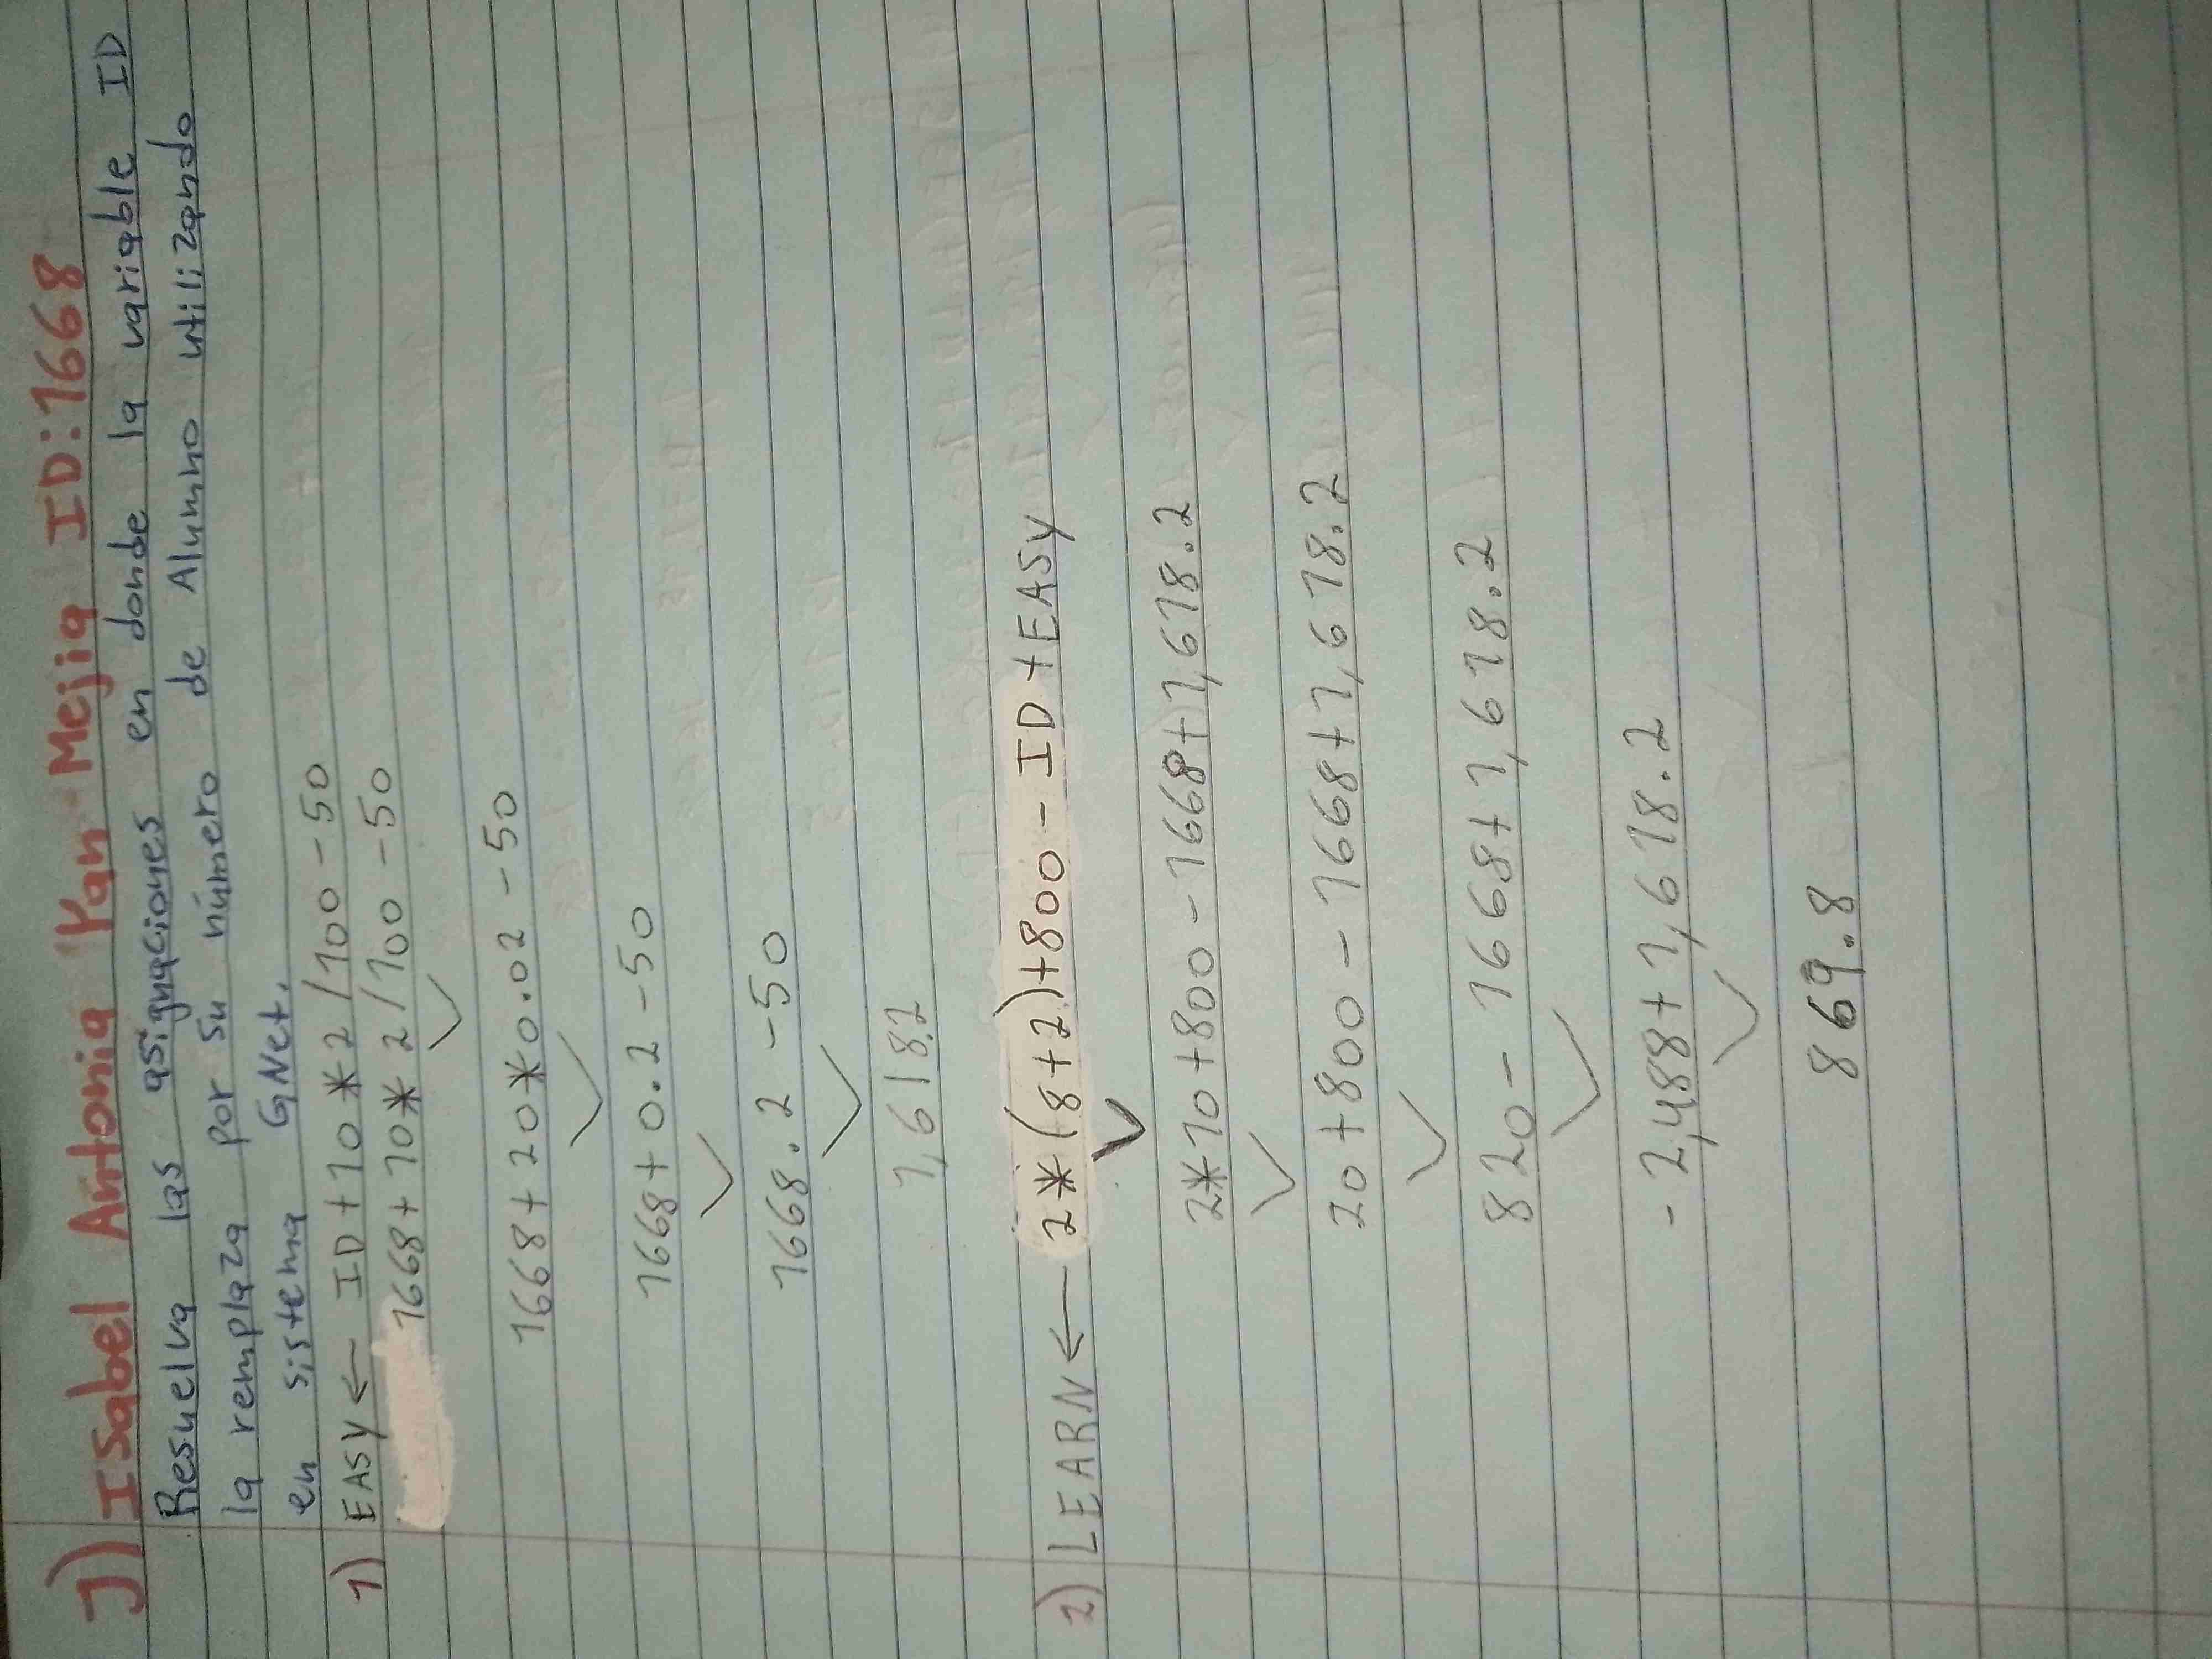 J) Isabel Antonia Yan Mejia ID:1668
Resuelva las asignaciones en donde la variable ID
la remplaza por su número de Alumno utilizando
en sistema GNet.
1) EASY ← ID + 10 * 2 / 100 - 50
1668 + 10 * 2 / 100 - 50
1668 + 20 * 0.02 - 50
1668 + 0.2 - 50
1668.2 - 50
1,618.2
2) LEARN ← 2 * (8 + 2) + 800 - ID + EASY
2 * 10 + 800 - 1668 + 1,618.2
20 + 800 - 1668 + 1,618.2
820 - 1668 + 1,618.2
-2,488 + 1,618.2
869.8